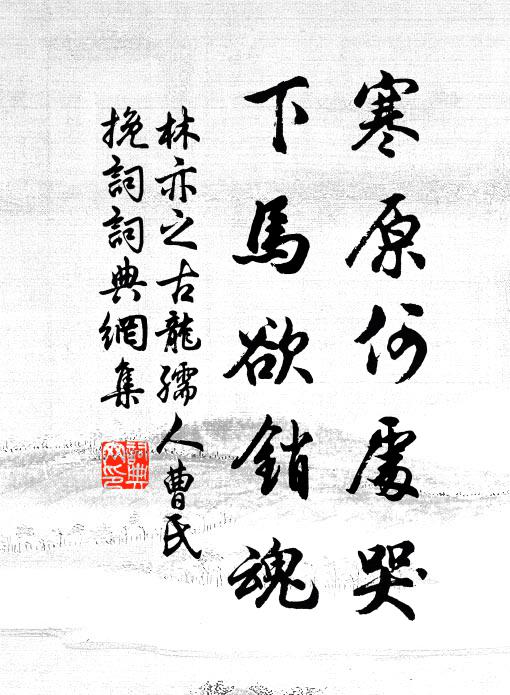 寒原何處哭
下馬欲銷魂
林亦之古龍孺人曹氏
挽詞詞典網集